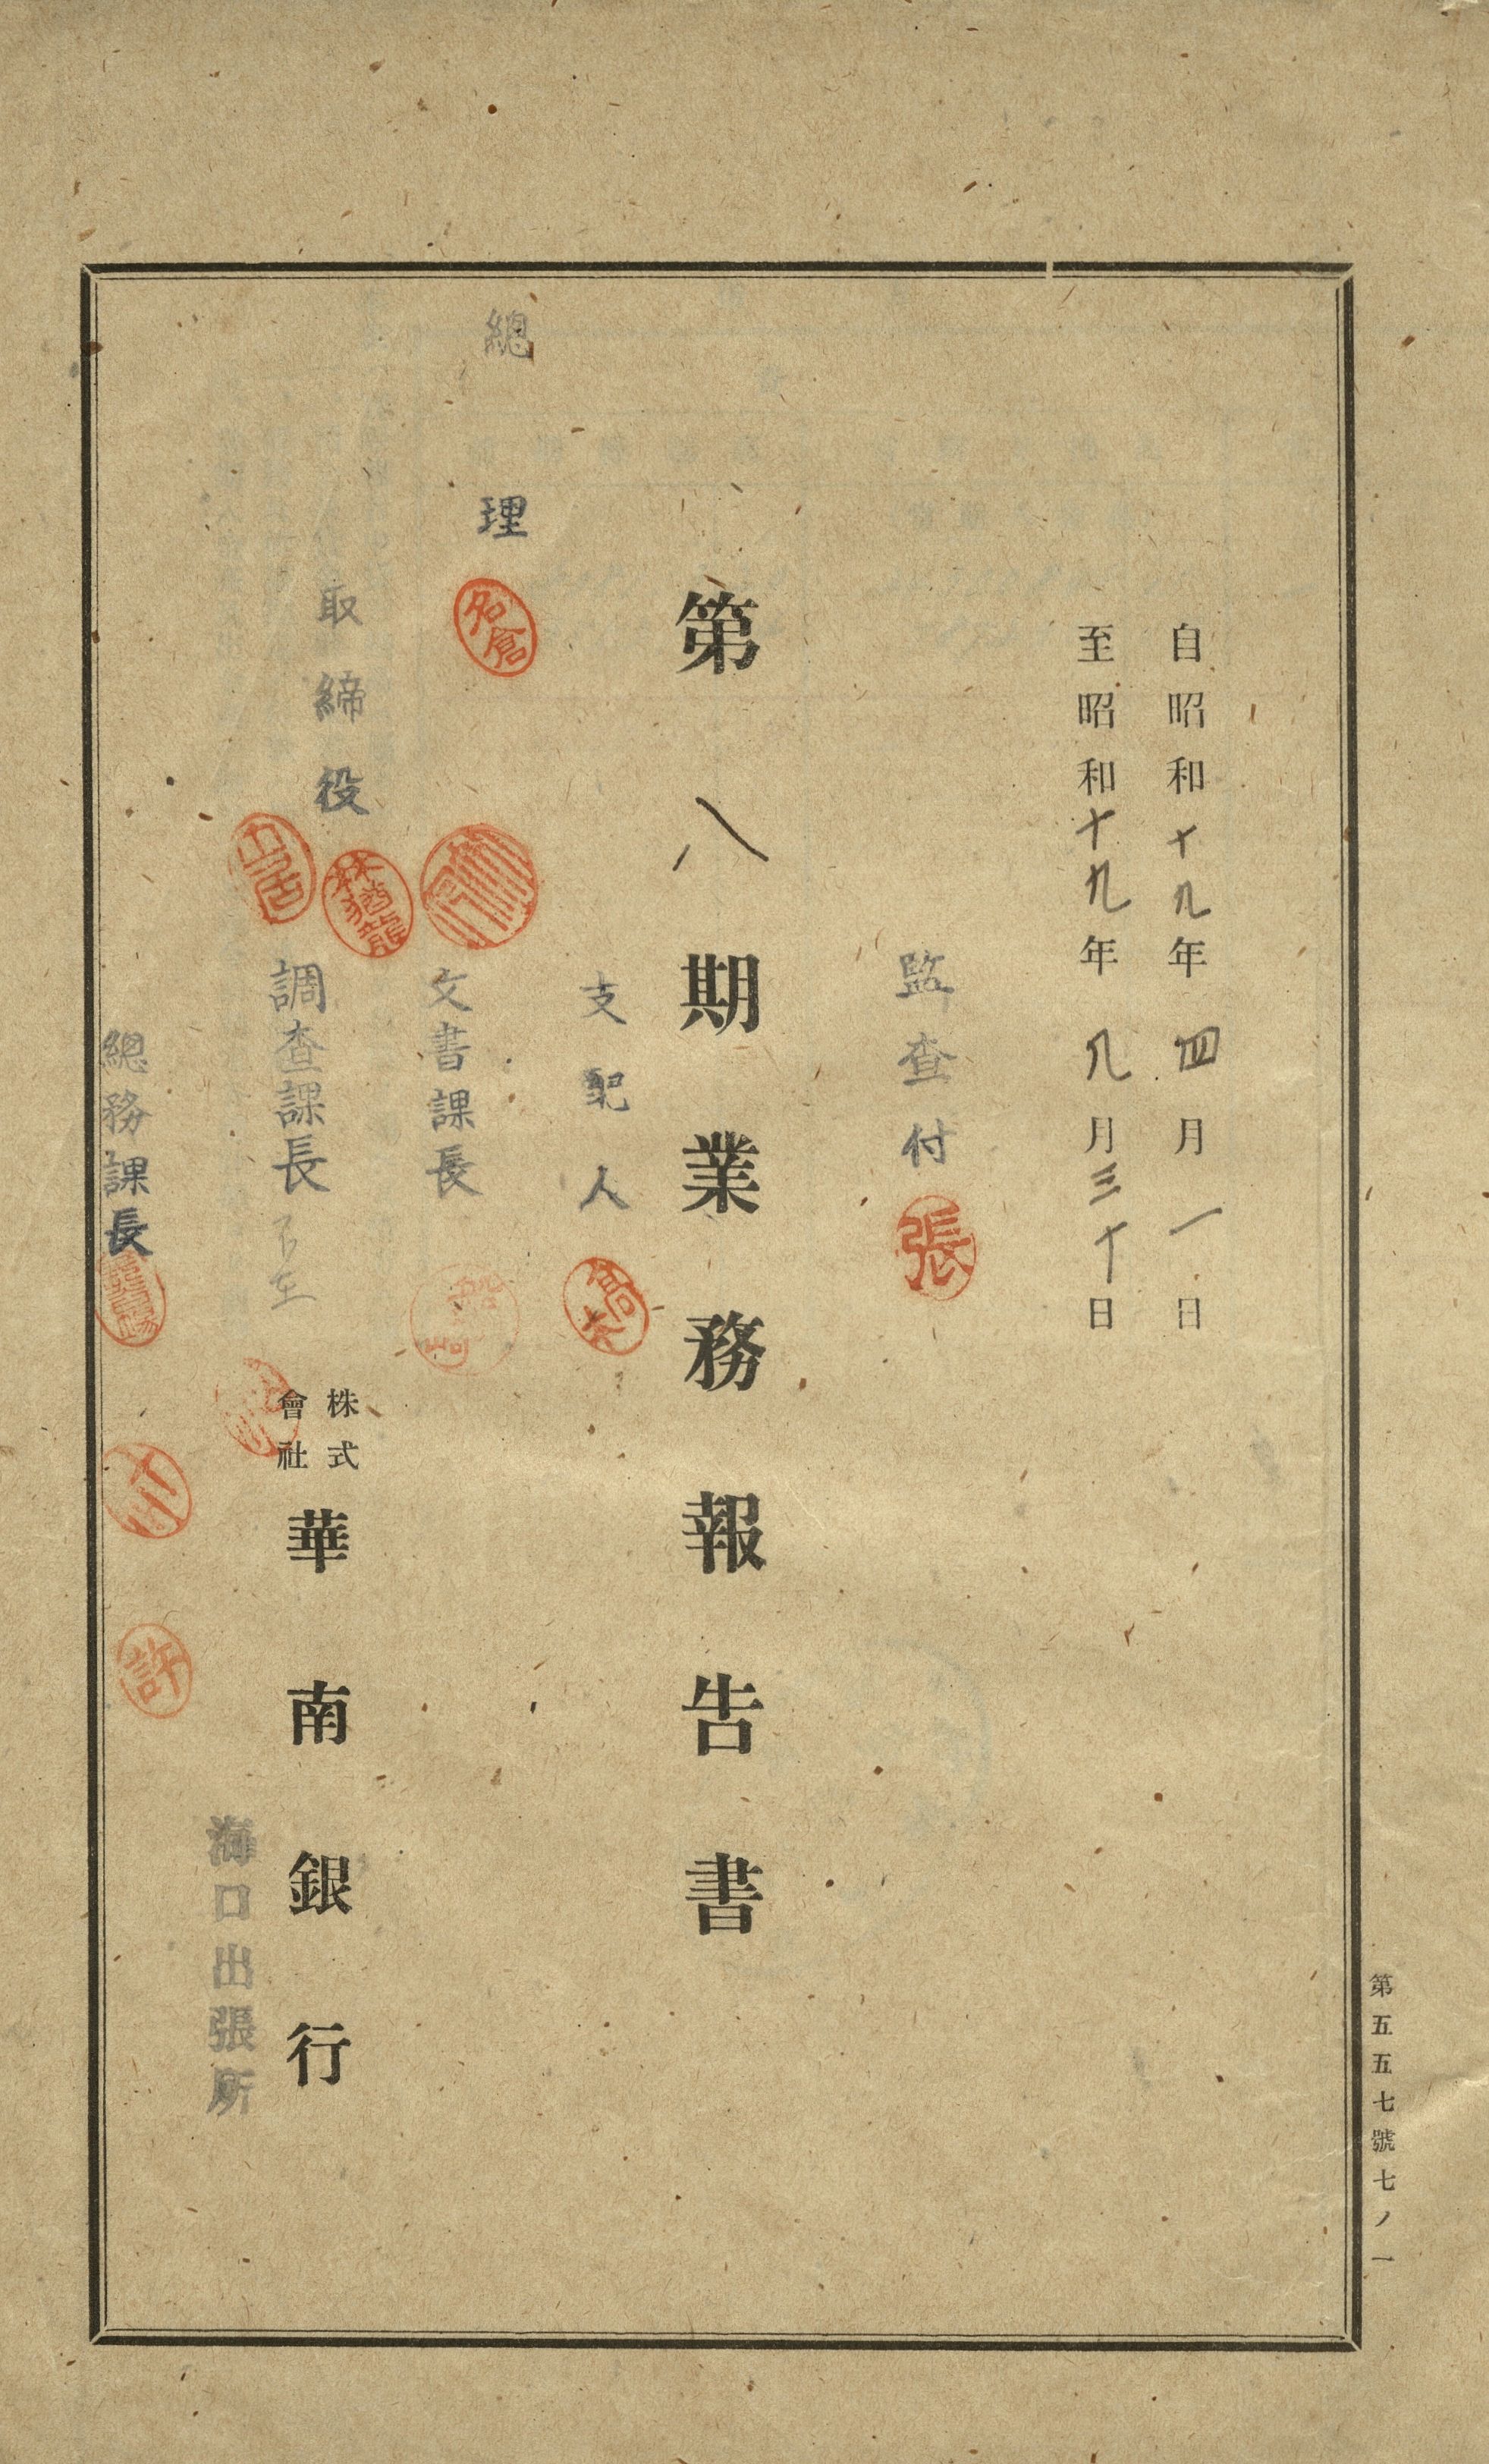 自昭和十九年四月一日
至昭和十九年九月三十日
監査付
張
第八期業務報告書
支配人
高矢
總理
名倉
文書課長
取締役
林猶龍
調査課長
不在
株式會社
華南銀行
海口出張所
總務課長
許
第五五七號七ノ一